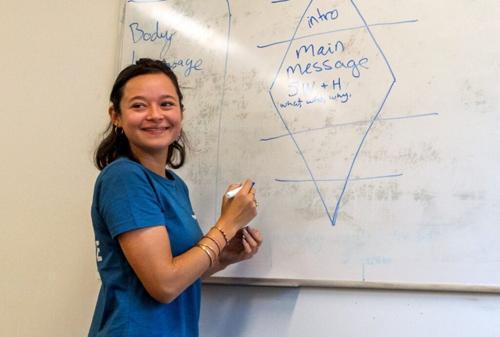 Body
Language
intro
Main
message
5W + H
what, who, why,